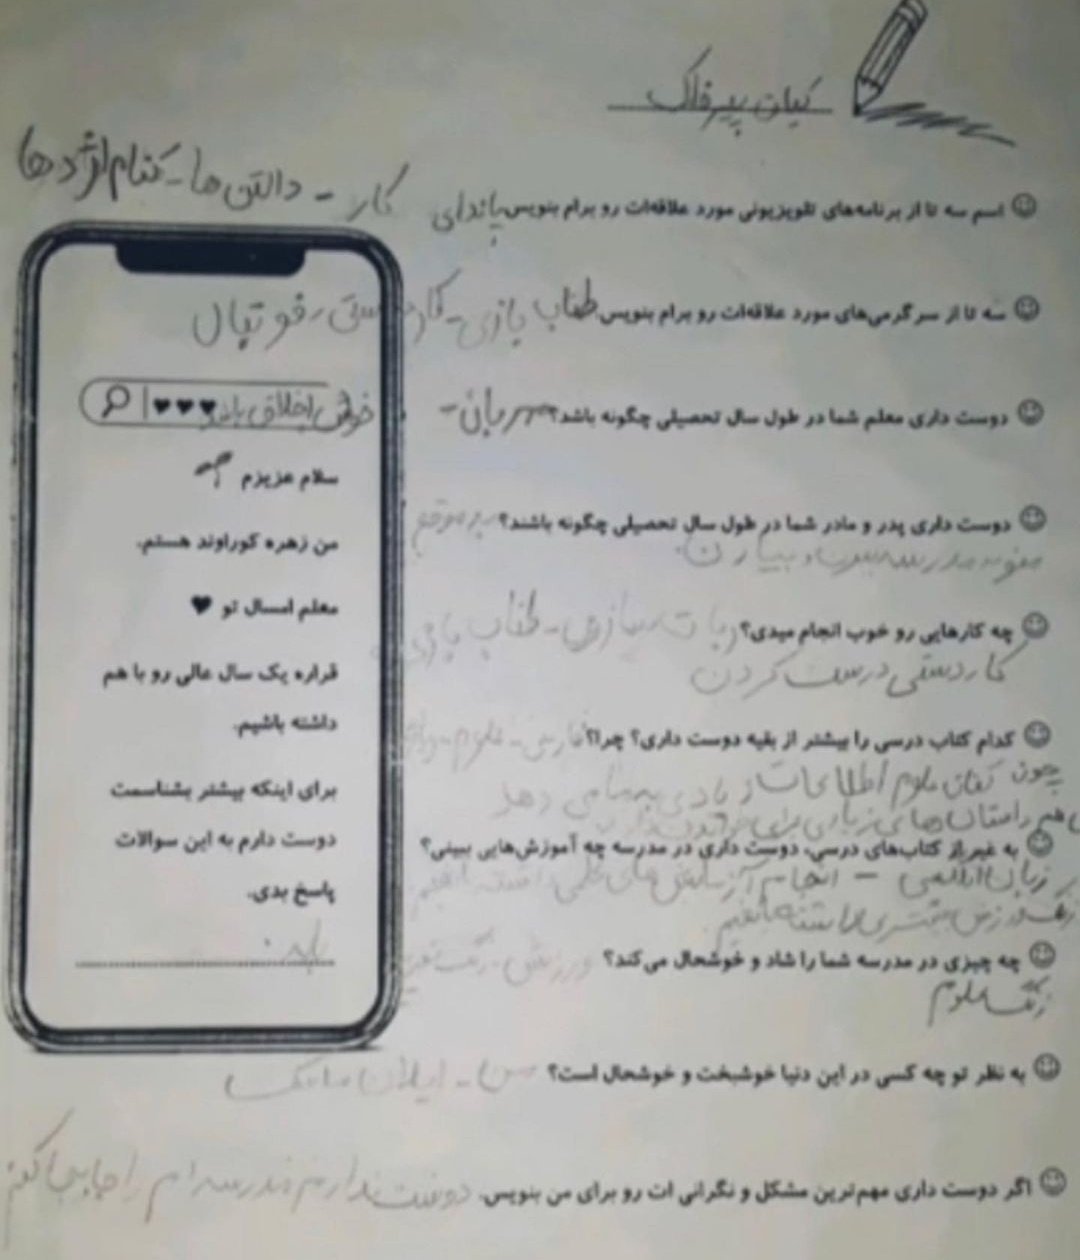 کیان پیرفلک
اسم سه تا از برنامه‌های تلویزیونی مورد علاقه‌ات رو برام بنویس پاندای کار - دالتن ها - کدام اژدها
سه تا از سرگرمی‌های مورد علاقه‌ات رو برام بنویس طناب بازی - کاردستی - فوتبال
دوست داری معلم شما در طول سال تحصیلی چگونه باشد؟ مهربان - خوش اخلاق باشد ♥♥♥
دوست داری پدر و مادر شما در طول سال تحصیلی چگونه باشند؟ به موقع
چه کارهایی رو خوب انجام میدی؟ ربات سازی - طناب بازی
کاردستی درست کردن
کدام کتاب درسی را بیشتر از بقیه دوست داری؟ چرا؟ فارسی - علوم
چون کتاب علوم اطلاعات زیادی به ما می دهد
به غیر از کتاب‌های درسی، دوست داری در مدرسه چه آموزش‌هایی ببینی؟
زبان - انجام آزمایش های علمی
زنگ ورزش بیشتری داشته باشیم
چه چیزی در مدرسه شما را شاد و خوشحال می‌کند؟ ورزش - زنگ تفریح
زنگ علوم
به نظر تو چه کسی در این دنیا خوشبخت و خوشحال است؟ من - ایلان ماسک
اگر دوست داری مهم‌ترین مشکل و نگرانی ات رو برای من بنویس. دوست ندارم مدرسه ام را جابجا کنم
سلام عزیزم
من زهره کوراوند هستم.
معلم امسال تو ♥
قراره یک سال عالی رو با هم
داشته باشیم.
برای اینکه بیشتر بشناسمت
دوست دارم به این سوالات
پاسخ بدی.